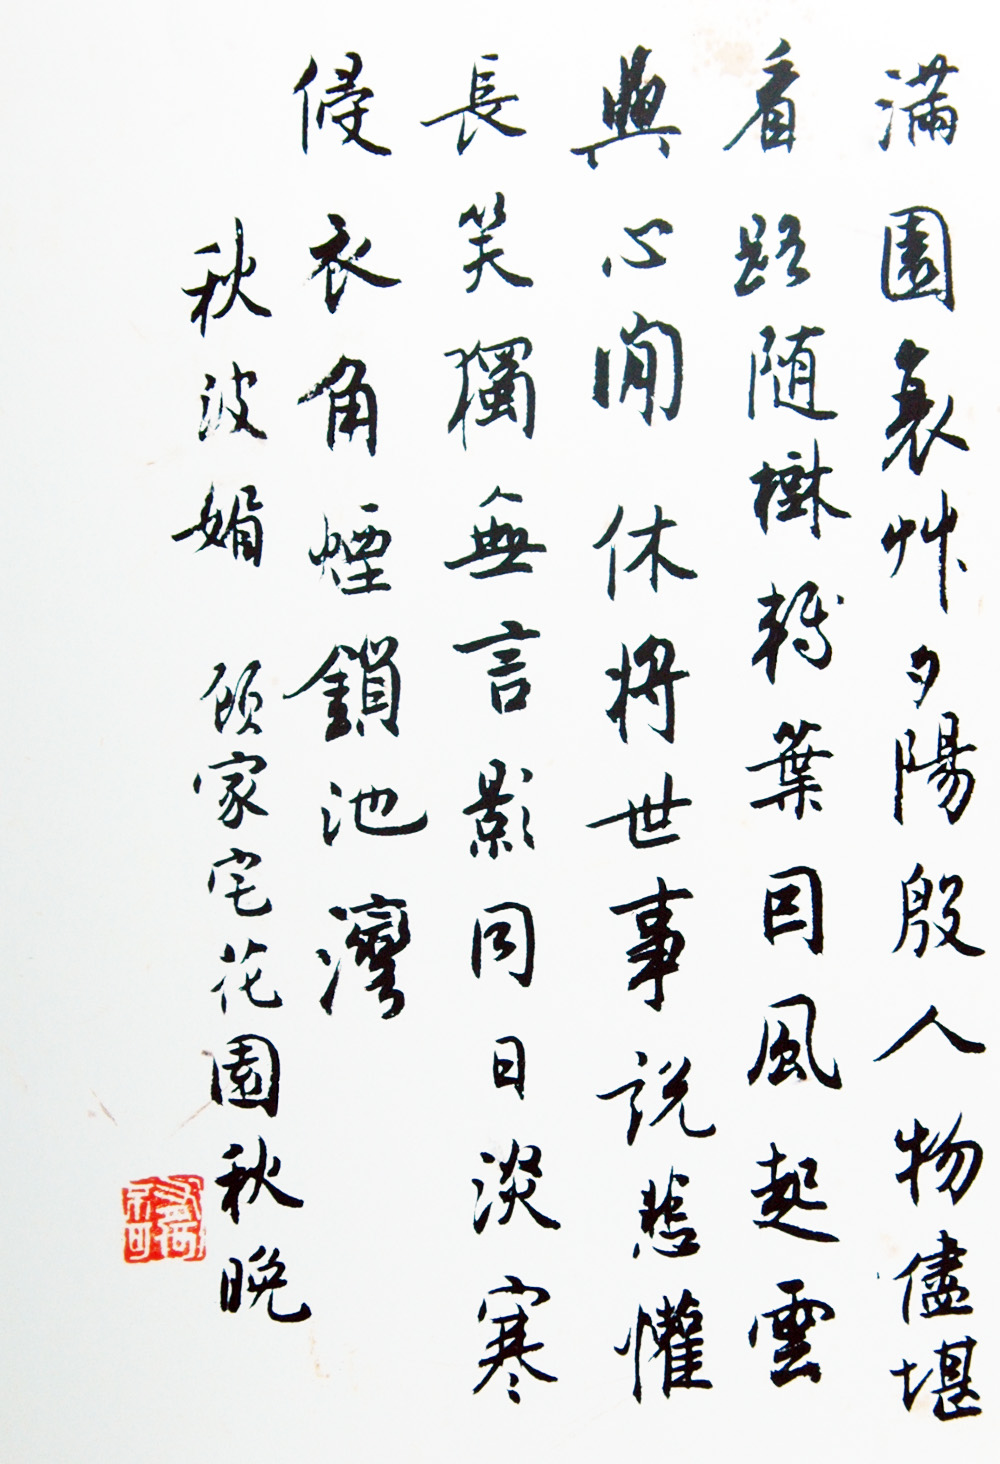 滿園衰艸夕陽殷人物儘堪
看路随樹轉葉因風起雲
與心閒休將世事說悲懽
長笑獨無言影同日淡寒
侵衣角煙鎖池灣
秋波媚 顧家宅花園秋晚